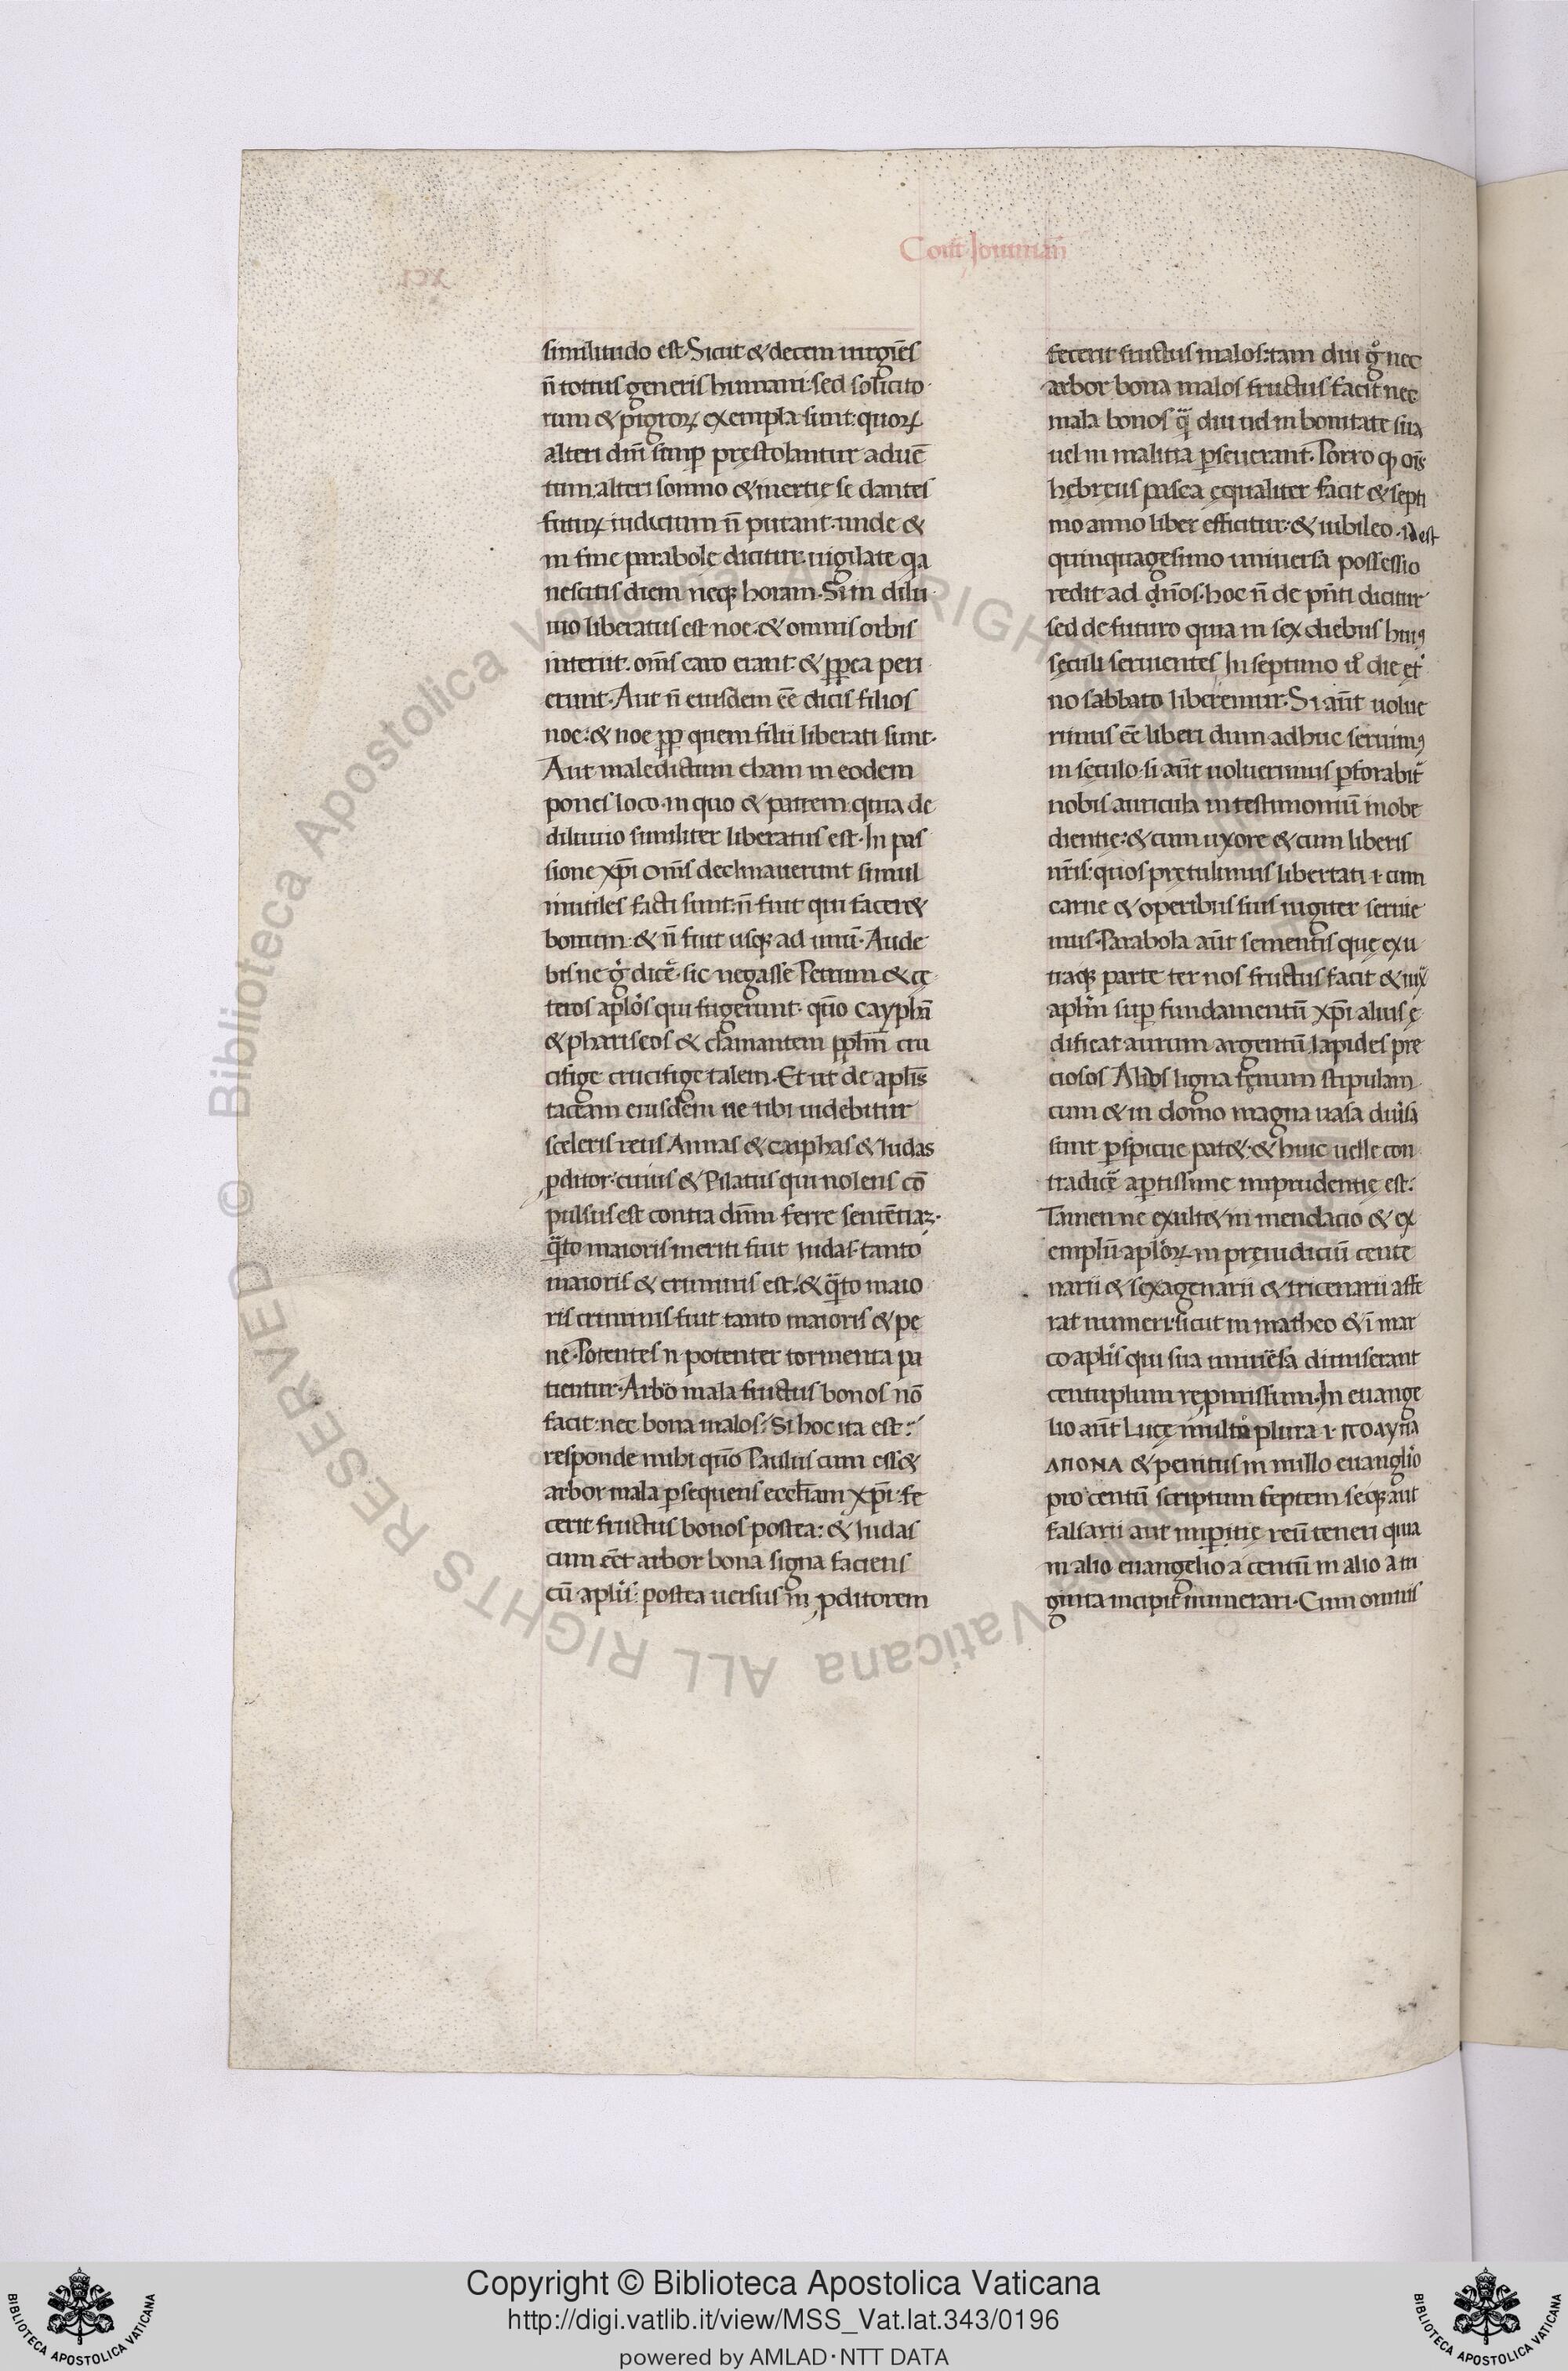 Cont̄ Jouinian̄
similitudo est. Sicut & decem uirgiēs
n̄ totius generis humani. sed sollicito
rum & pigroꝝ exempla sunt. quoꝝ
alteri dn̄i semp̄ pręstolantur aduē
tum. alteri somno & inertię se dantes
futuꝝ iudicium n̄ putant. unde &
in fine parabolę dicitur. uigilate qa
nescitis diem neq; horam. Si in dilu
uio liberatus est noe. & omnis orbis
interiit. om̄s caro erant. & pp̄ea peri
erunt. Aut n̄ eiusdem ēē dicis filios
noe: & noe pp̄ quem filii liberati sunt.
Aut maledictum cham in eodem
ponis loco. in quo & patrem. quia de
diluuio similiter liberatus est. In pas
sione xp̄i om̄s declinauerunt simul
inutiles facti sunt. n̄ fuit qui facer&
bonum. & n̄ fuit usq; ad unū. Aude
bis ne g̊ dicē. sic negasse Petrum & cę
teros aplōs qui fugerunt. quō Cayphā
& phariseos & clamantem pplm̄ cru
cifige crucifige talem. Et ut de aplīs
taceam eiusdem ne tibi uidebitur
sceleris reus Annas & caiphas & Iudas
ꝓditor. cuius & Pilatus qui nolens cō
pulsus est contra dnm̄ ferre sententiaʒ.
q̄to maioris meriti fuit Iudas. tanto
maioris & criminis est. & q̄to maio
ris criminis fuit tanto maioris & pe
nę. Potentes n̄ potenter tormenta pa
tientur. Arbo mala fructus bonos nō
facit. nec bona malos. Si hoc ita est.
responde mihi quō Paulus cum ess&
arbor mala ꝑsequens eccl̄iam xp̄i. fe
cerit fructus bonos postea: & Iudas
cum eēt arbor bona signa faciens
cū aplīs. postea uersus in ꝓditorem
fecerit fructus malos. tam diu g̊ nec
arbor bona malos fructus facit nec
mala bonos q̄ diu uel in bonitate sua
uel in malitia ꝑseuerant. Porro qđ oīs
hebreus pasca ęqualiter facit & septi
mo anno liber efficitur. & iubileo. id est
quinquagesimo uniuersa possessio
redit ad dn̄os. hoc n̄ de pn̄ti dicitur
sed de futuro quia in sex diebus huiꝰ
sęculi seruientes In septimo ū die et̄
no sabbato liberemur. Si aūt uolue
rimus eēe liberi dum adhuc seruimꝰ
in sęculo. si aūt uoluerimus ꝑforabit̄
nobis auricula in testimoniū inobe
dientię. & cum uxore & cum liberis
nr̄is. quos pretulimus libertati .i. cum
carne & operibus suis iugiter seruie
mus. Parabola aūt sementis quę ex u
traq; parte ter nos fructus facit & iux̄
aplm̄ sup̄ fundamentū xp̄i alius ę
dificat aurum argentū lapides pre
ciosos Alios ligna fęnum stipulam
cum & in domo magna uasa diuīsa
sunt ꝑspicue pat&. & huic uelle con
tradicē aꝑtissime imprudentię est.
Tamen ne exult& in mendacio & ex
emplū aplōꝝ in pręiudiciū cente
narii & sexagenarii & tricenarii affe
rat numeri. sicut in matheo & ī mar
co aplīs qui sua uniuēsa dimiserant
centuplum repromissum. In euange
lio aūt Lucę multo plura .i. ΠΟΛΥΠΛΑ
ΛΠΟΝΑ & penitus in nullo euanglīo
pro centū scriptum septem seq; aut
falsarii aut imꝑitię reū teneri quia
in alio euangelio a centū in alio a tri
ginta incipit̄ numerari. Cum omnis
Copyright © Biblioteca Apostolica Vaticana
http://digi.vatlib.it/view/MSS_Vat.lat.343/0196
powered by AMLAD·NTT DATA
© Biblioteca Apostolica Vaticana ALL RIGHTS RESERVED
BIBLIOTECA APOSTOLICA VATICANA
BIBLIOTECA APOSTOLICA VATICANA